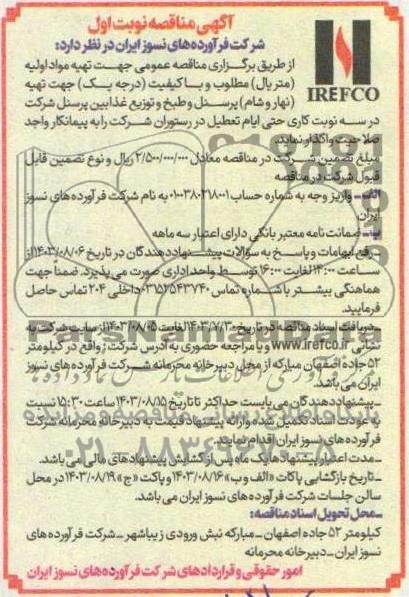 آگهی مناقصه نوبت اول
شرکت فرآورده‌های نسوز ایران در نظر دارد:
IREFCO
از طریق برگزاری مناقصه عمومی جهت تهیه مواد اولیه
(متریال) مطلوب و با کیفیت (درجه یک) جهت تهیه
(نهار و شام) پرسنل و طبخ و توزیع غذا بین پرسنل شرکت
در سه نوبت کاری حتی ایام تعطیل در رستوران شرکت را به پیمانکار واجد
صلاحیت واگذار نمایند.
مبلغ تضمین شرکت در مناقصه معادل ۲/۵۰۰/۰۰۰/۰۰۰ ریال و نوع تضمین قابل
قبول شرکت در مناقصه
الف- واریز وجه به شماره حساب ۰۱۰۰۳۸۰۲۱۸۰۰۱ به نام شرکت فرآورده های نسوز
ایران
ب- ضمانت نامه معتبر بانکی دارای اعتبار سه ماهه
-رفع ابهامات و پاسخ به سوالات پیشنهاد دهندگان در تاریخ ۱۴۰۳/۰۸/۰۶ از
ساعت ۱۴:۰۰ لغایت ۱۶:۰۰ توسط واحد اداری صورت می پذیرد. ضمنا جهت
هماهنگی بیشتر با شماره تماس ۰۳۱۵۲۵۴۳۷۴۰ داخلی ۲۰۴ تماس حاصل
فرمایید.
-دریافت اسناد مناقصه در تاریخ ۱۴۰۳/۷/۳۰ لغایت ۱۴۰۳/۰۸/۰۵ از سایت شرکت به
نشانی www.irefco.ir و یا مراجعه حضوری به آدرس شرکت: واقع در کیلومتر
۵۲ جاده اصفهان مبارکه از محل دبیرخانه محرمانه شرکت فرآورده های نسوز
ایران می باشد.
-پیشنهاد دهندگان می بایست حداکثر تا تاریخ ۱۴۰۳/۰۸/۱۵ ساعت ۱۵:۳۰ نسبت
به عودت اسناد تکمیل شده و ارائه پیشنهاد قیمت به دبیرخانه محرمانه شرکت
فرآورده های نسوز ایران اقدام نمایند.
-مدت اعتبار پیشنهادها یک ماه پس از گشایش پیشنهادهای مالی می باشد.
-تاریخ بازگشایی پاکات «الف و ب» ۱۴۰۳/۰۸/۱۶ و پاکت «ج» ۱۴۰۳/۰۸/۱۹ در محل
سالن جلسات شرکت فرآورده های نسوز ایران می باشد.
-محل تحویل اسناد مناقصه:
کیلومتر ۵۲ جاده اصفهان - مبارکه نبش ورودی زیباشهر - شرکت فرآورده های
نسوز ایران - دبیرخانه محرمانه
امور حقوقی و قراردادهای شرکت فرآورده های نسوز ایران